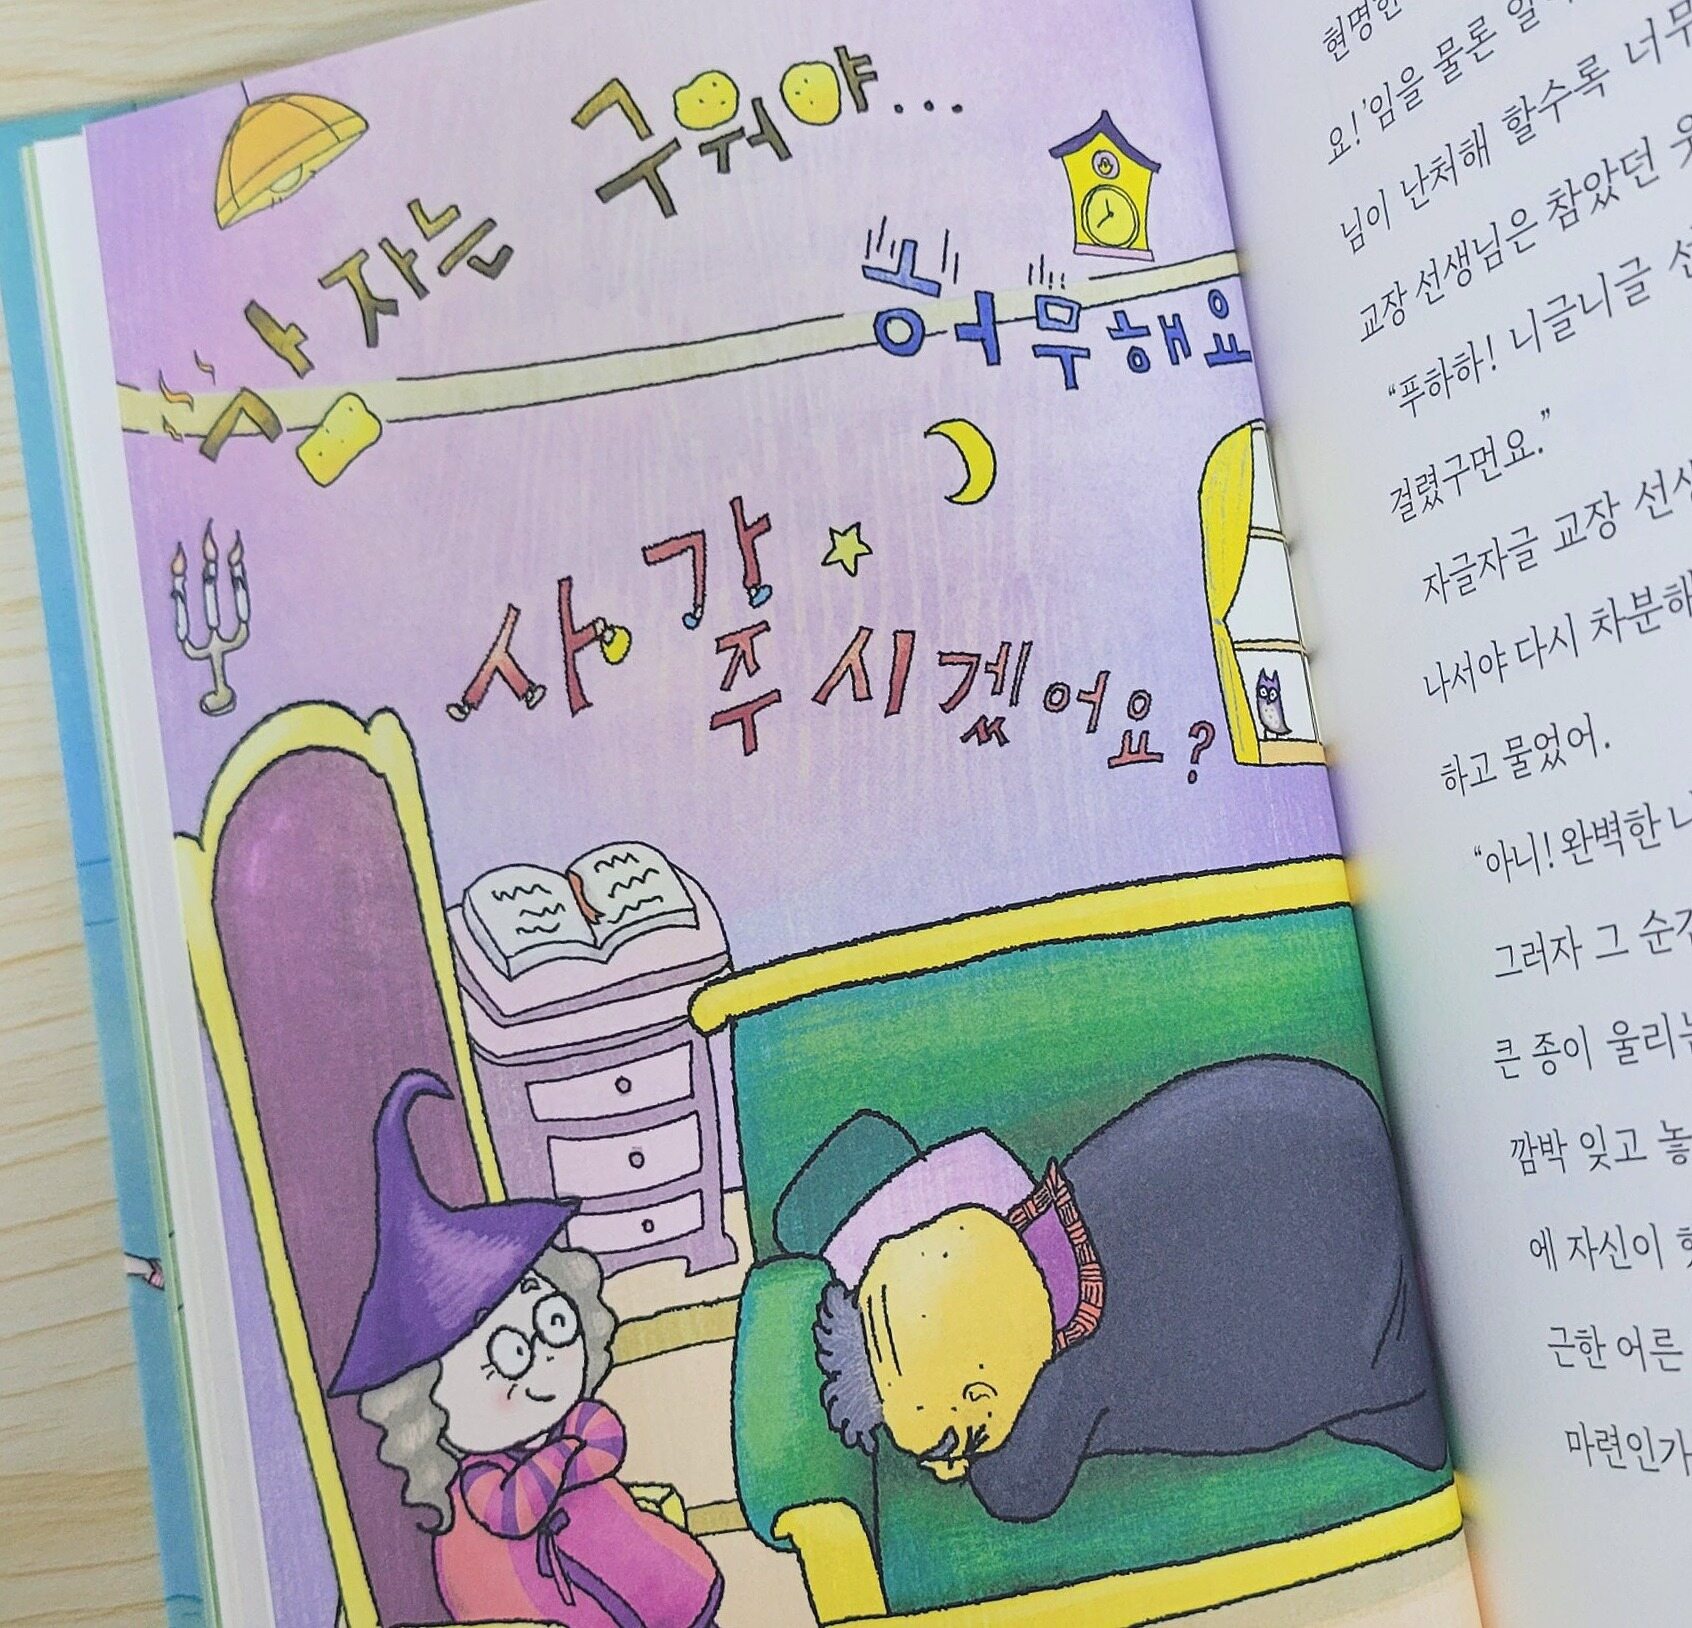 감자는 구워야...
사 가 주시겠어요?
현명한
요!’임을 물론
님이 난처해 할수록 너무
교장 선생님은 참았던
“푸하하! 니글니글
걸렸구먼요.”
자글자글 교장
나서야 다시
하고 물었어.
“아니! 완벽한
그러자 그
큰 종이 울리는
깜박 잊고
에 자신이
근한 어른
마련인가